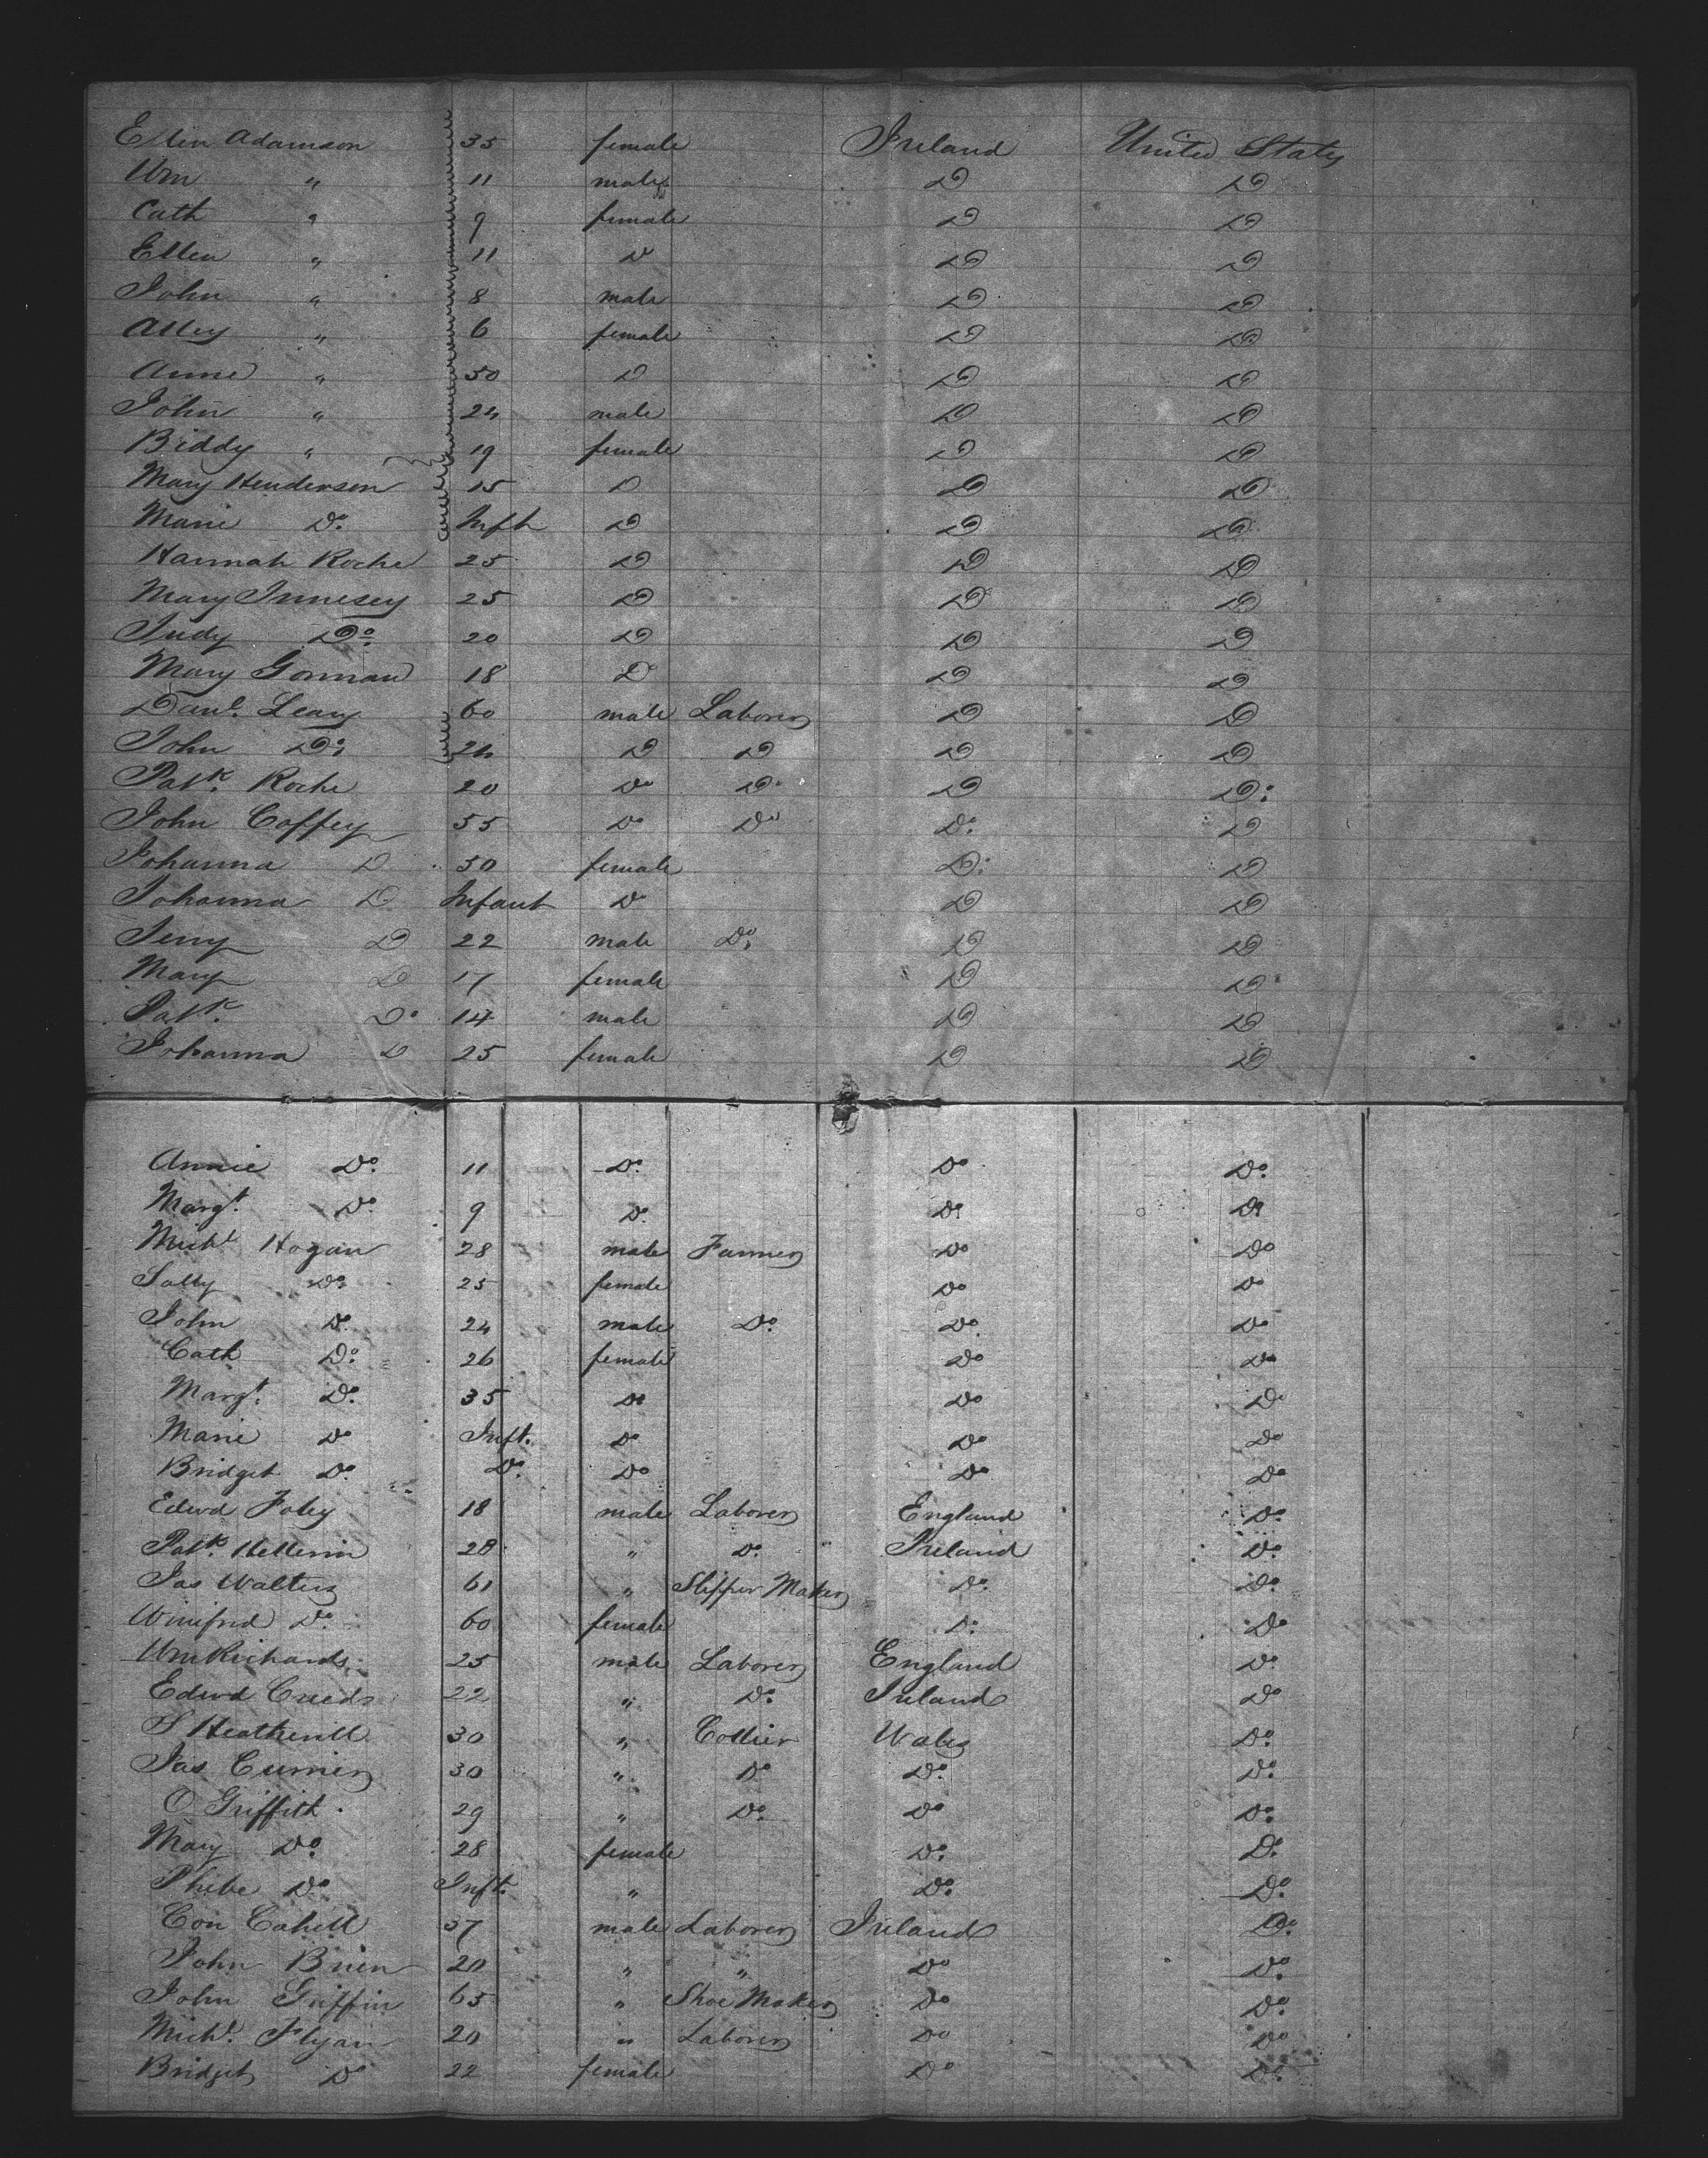 Ellen Adamson 35 female Ireland United States
Wm " 11 male D D
Cath " 9 female D D
Ellen " 11 D D D
John " 8 male D D
Alley " 6 female D D
Anne " 50 D D D
John " 24 male D D
Biddy " 19 female D D
Mary Henderson 15 D D D
Marie Do. Inft D D D
Hannah Roche 25 D D D
Mary Innesey 25 D D D
Judy Do. 20 D D D
Mary Gorman 18 D D D
Danl. Leary 60 male Laborer D D
John Do. 24 D D D D
Patk. Roche 20 Do D. D D.
John Coffey 55 Do Do Do. D
Johanna D 50 female D. D
Johanna D Infant D D D
Jerry D 22 male Do. D D
Mary D 17 female D D
Patk. Do 14 male D D
Johanna D 25 female D D
Annie Do. 11 Do. Do Do.
Margt. Do. 9 Do. Do. Do
Michl Hogan 28 male Farmer Do Do
Sally Do. 25 female Do Do
John Do. 24 male Do. Do. Do
Cath Do. 26 female Do Do
Margt. Do. 35 Do Do Do
Marie Do Inft. Do Do. Do
Bridget Do. Do. Do Do Do
Edwd Foley 18 male Laborer England Do.
Patk. 28 " Do. Ireland Do.
Jas Walters 61 " Slipper Maker Do. Do.
Winifred Do. 60 female Do. Do
Wm Richards 25 male Laborer England Do.
Edwd 22 " Do. Ireland Do
S 30 " Collier Wales Do.
Jas 30 " Do Do. Do.
O Griffith. 29 " Do. Do Do.
Mary Do. 28 female Do. Do.
Phebe Do. Inft. " Do. Do.
Con Cahill 37 male Laborer Ireland Do.
John Brien 20 " " Do Do.
John Griffin 65 " Shoe Maker Do Do.
Michl. Flynn 20 " Laborer Do Do
Bridget Do 22 female Do Do.